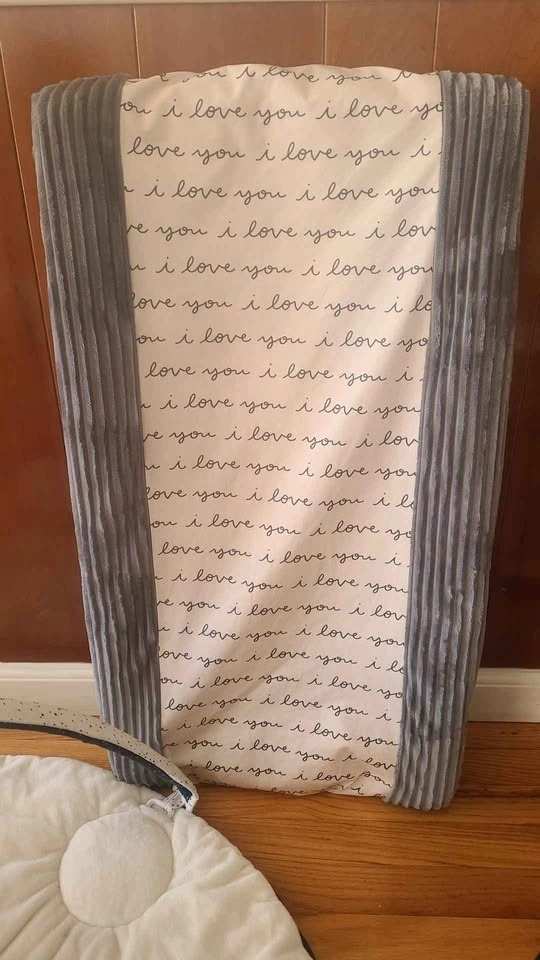 you i love you
ou i love you i love yo
love you i love you i
i love you i love you
ve you i love you i lov
u i love you i love you
love you i love you i lo
ou i love you i love yo
love you i love you i
i love you i love you
ve you i love you i lov
i love you i love you
love you i love you i lo
ou i love you i love yo
love you i love you i
i love you i love you
ve you i love you i lov
i love you i love you
ove you i love you i lo
ou i love you i love yo
love you i love you i
i love you i love you
you i love you i lov
i love you i love you
love you